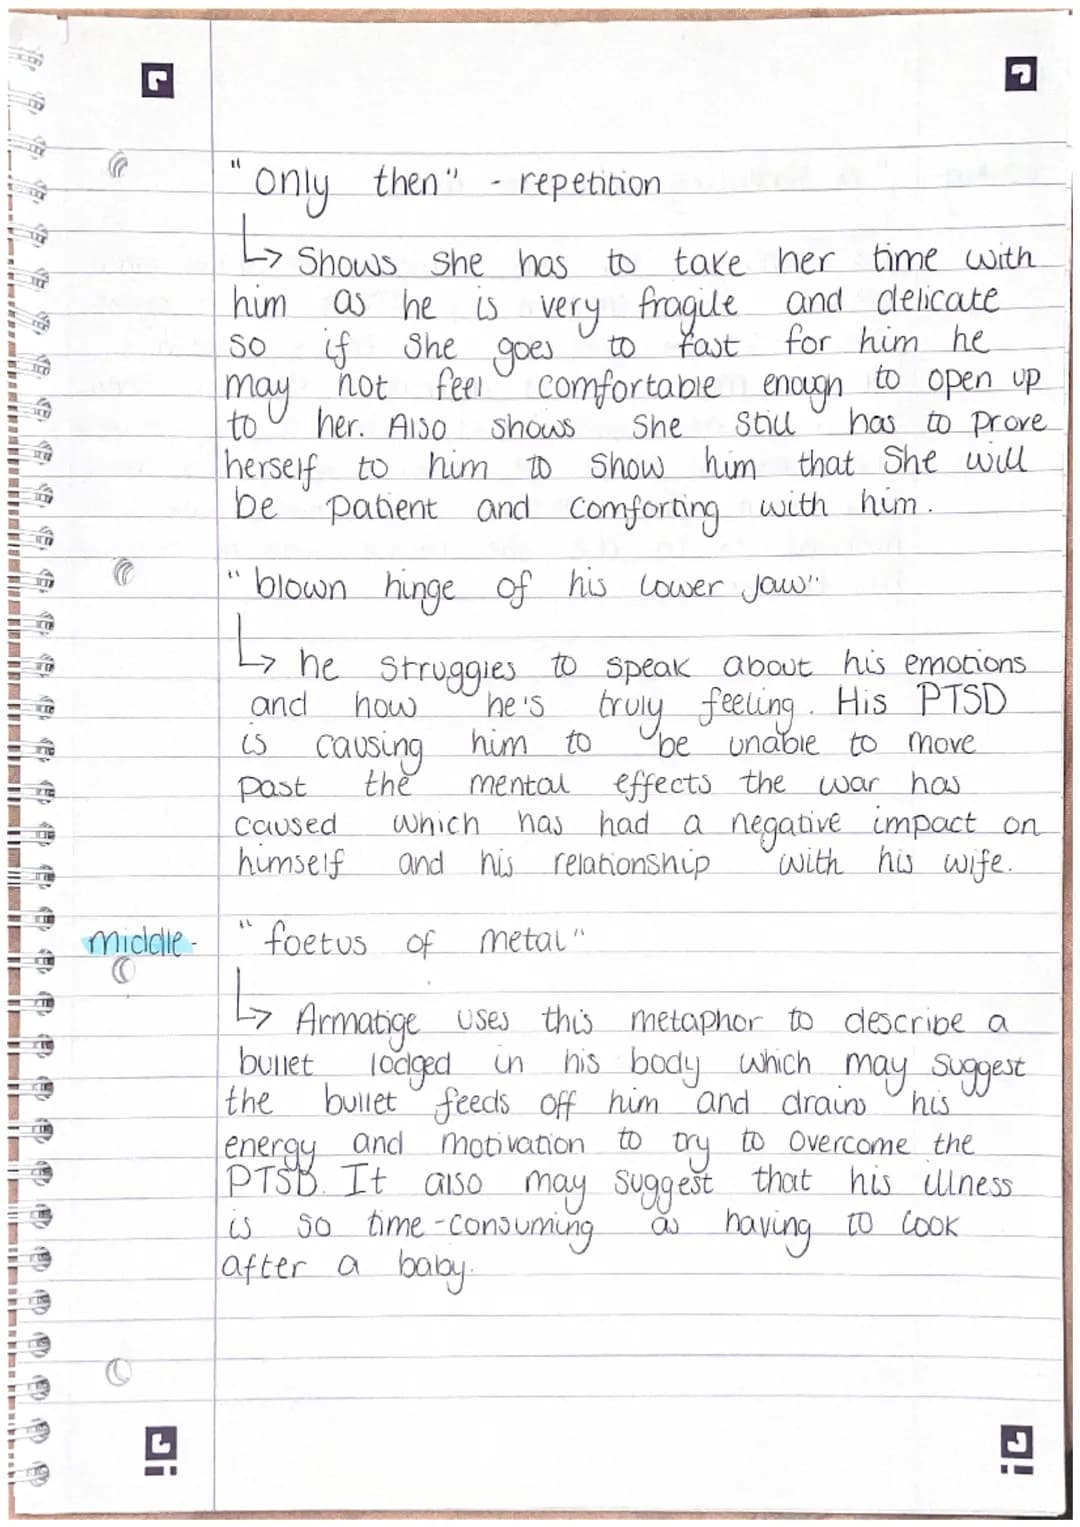 "only then" - repetition
↳ Shows she has to take her time with
him as he is very fragile and delicate
so if she goes to fast for him he
may not feel comfortable enough to open up
to her. Also shows she still has to prove
herself to him to show him that she will
be patient and comforting with him.
"blown hinge of his lower jaw"
↳ he struggles to speak about his emotions
and how he's truly feeling. His PTSD
is causing him to be unable to move
past the mental effects the war has
caused which has had a negative impact on
himself and his relationship with his wife.
middle- "foetus of metal"
↳ Armatige uses this metaphor to describe a
bullet lodged in his body which may suggest
the bullet feeds off him and drains his
energy and motivation to try to overcome the
PTSD. It also may suggest that his illness
is so time-consuming as having to look
after a baby.